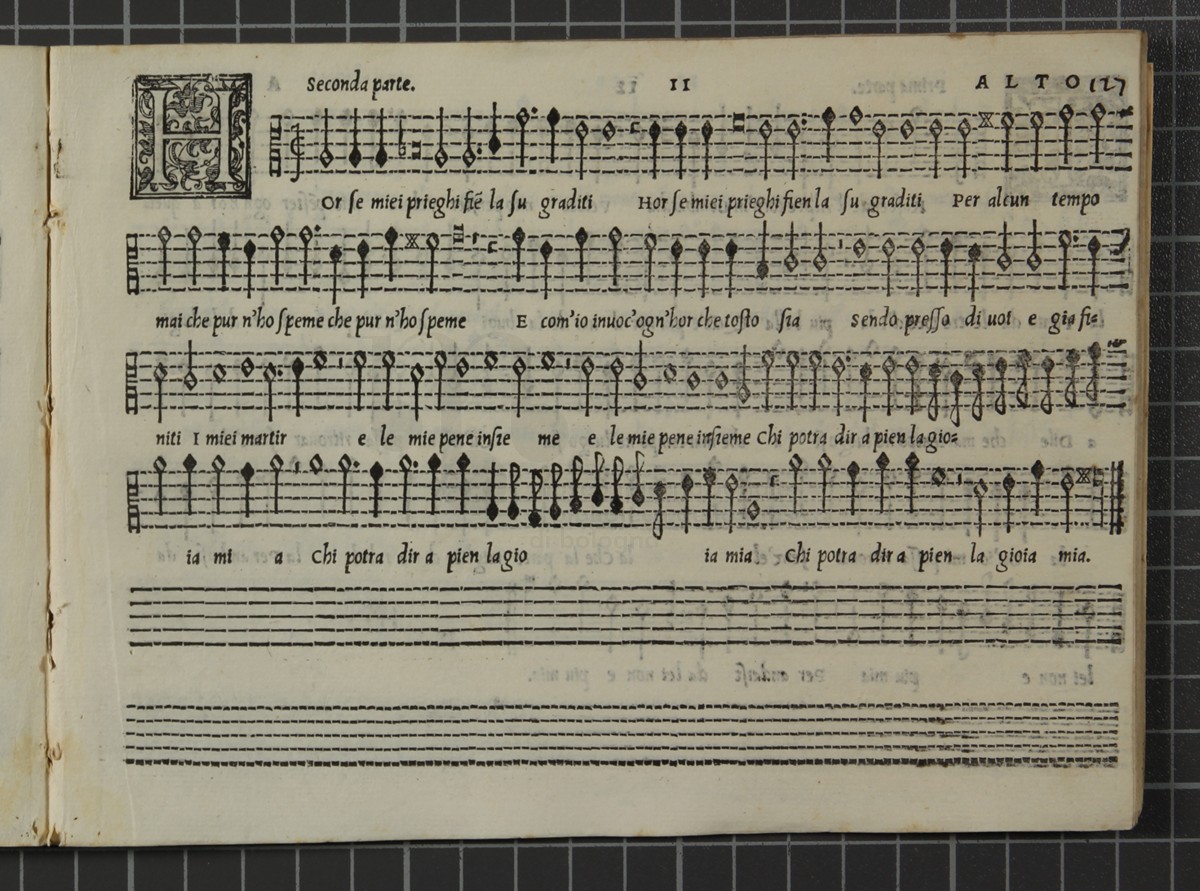 Seconda parte. 11 ALTO 127
H Or se miei prieghi fiē la su graditi Hor se miei prieghi fien la su graditi Per alcun tempo
mai che pur n'ho speme che pur n'ho speme E com'io inuoc'ogn'hor che tosto sia Sendo presso di uoi e gia fi=
niti I miei martir e le mie pene insie me e le mie pene insieme Chi potra dir a pien la gio=
ia mi a Chi potra dir a pien la gio ia mia. Chi potra dir a pien la gioia mia.